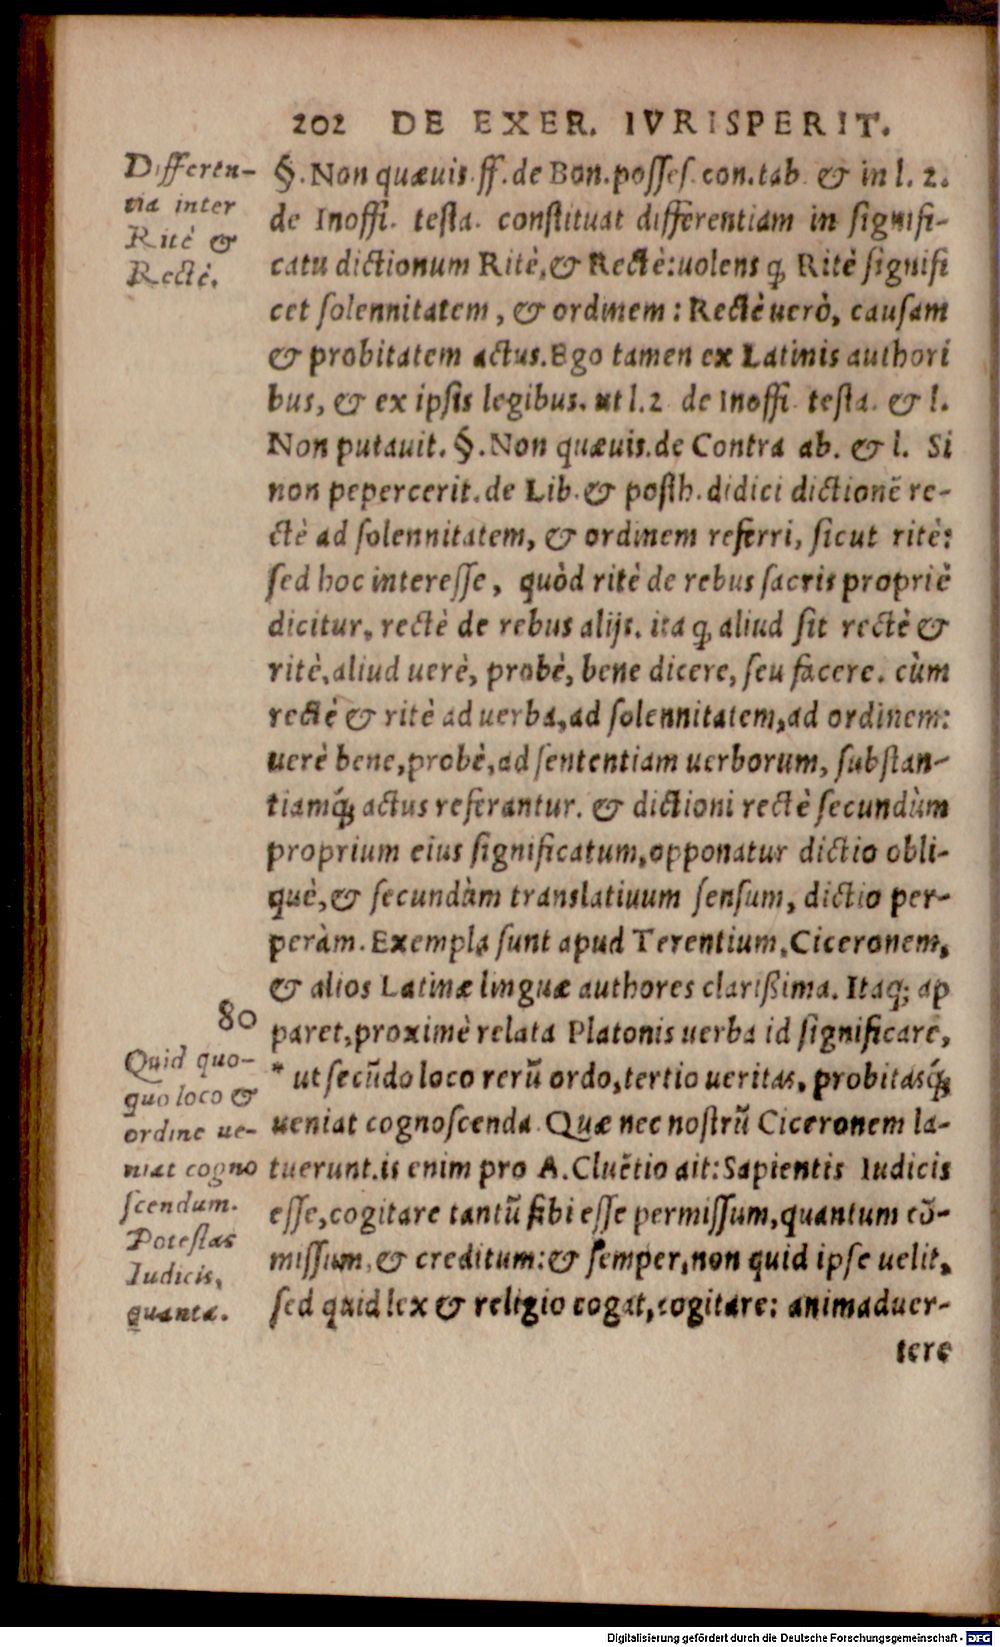 202 DE EXER. IVRISPERIT.
Differen-
tia inter
Ritè &
Rectè.
§. Non quæuis. ff. de Bon. posses. con. tab. & in l. 2.
de Inoffi. testa. constituat differentiam in signifi-
catu dictionum Ritè, & Rectè: uolens q̃ Ritè signifi
cet solennitatem, & ordinem: Rectè uerò, causam
& probitatem actus. Ego tamen ex Latinis authori
bus, & ex ipsis legibus. ut l. 2 de Inoffi. testa. & l.
Non putauit. §. Non quæuis. de Contra ab. & l. Si
non pepercerit. de Lib. & posth. didici dictionẽ re-
ctè ad solennitatem, & ordinem referri, sicut ritè:
sed hoc interesse, quòd ritè de rebus sacris propriè
dicitur, rectè de rebus alijs. ita q̃ aliud sit rectè &
ritè, aliud uerè, probè, bene dicere, seu facere. cùm
rectè & ritè ad uerba, ad solennitatem, ad ordinem:
uerè bene, probè, ad sententiam uerborum, substan-
tiamq́; actus referantur. & dictioni rectè secundùm
proprium eius significatum, opponatur dictio obli-
què, & secundùm translatiuum sensum, dictio per-
peràm. Exempla sunt apud Terentium, Ciceronem,
& alios Latinæ linguæ authores clarißima. Itaq; ap
80
paret, proximè relata Platonis uerba id significare,
Quid quo-
quo loco &
ordine ue-
niat cogno
scendum.
Potestas
Iudicis,
quanta.
* ut secũdo loco rerũ ordo, tertio ueritas, probitasq́;
ueniat cognoscenda. Quæ nec nostrũ Ciceronem la-
tuerunt. is enim pro A. Cluẽtio ait: Sapientis Iudicis
esse, cogitare tantũ sibi esse permissum, quantum cõ-
missum, & creditum: & semper, non quid ipse uelit,
sed quid lex & religio cogat, cogitare: animaduer-
tere
Digitalisierung gefördert durch die Deutsche Forschungsgemeinschaft - DFG